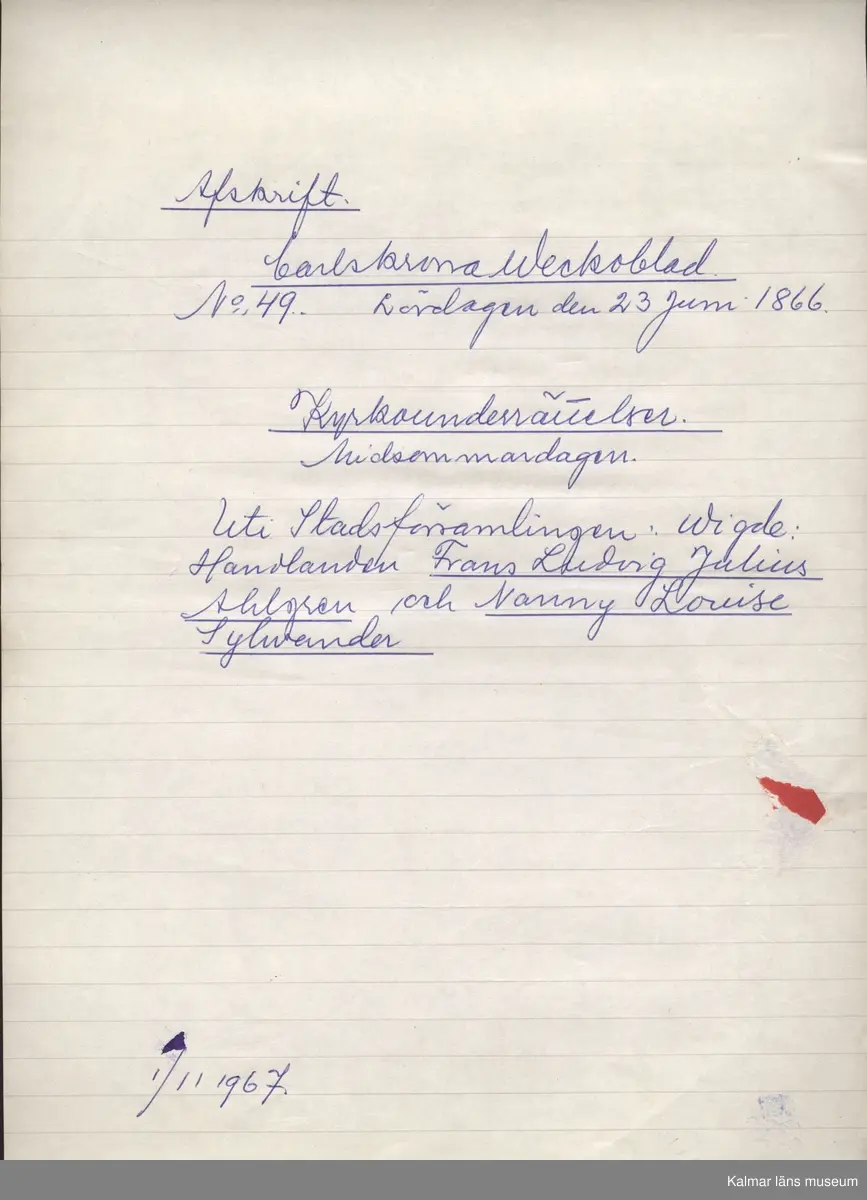 Afskrift.
Carlskrona Weckoblad.
No. 49. Lördagen den 23 Juni 1866.
Kyrkounderrättelser.
Midsommardagen.
Uti Stadsförsamlingen: Wigde:
Handlanden Frans Ludvig Julius
Ahlgren och Nanny Louise
Sylwander
1/11 1967.
Kalmar läns museum